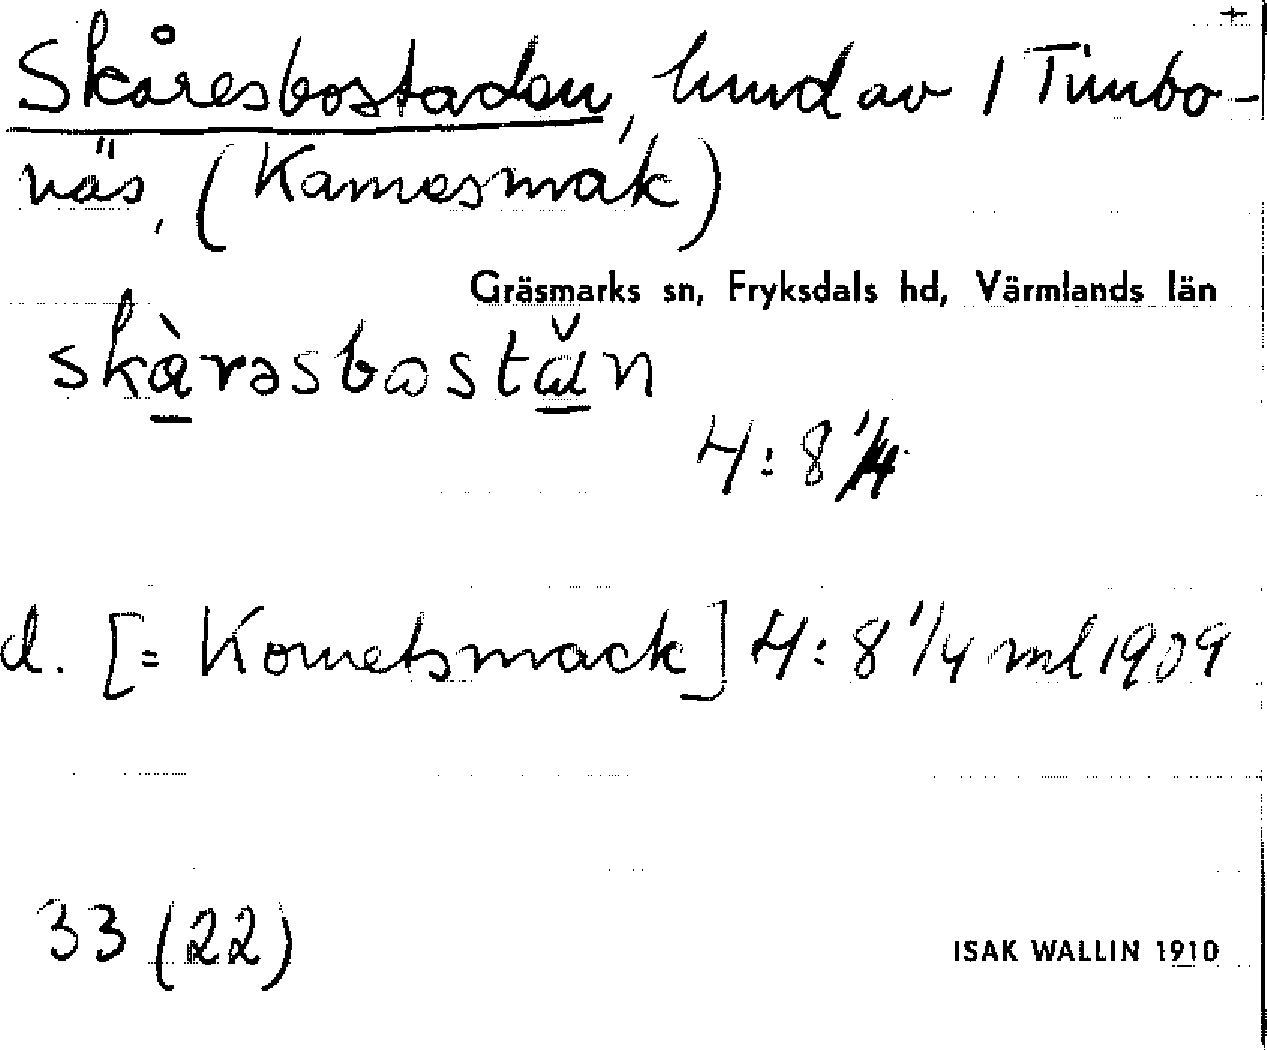 +
Skåresbostaden, hmd av 1 Timbo-
näs, (Kamesmak)
Gräsmarks sn, Fryksdals hd, Värmlands län
4:8 1/4
d. [= Kometsmack] 4:8 1/4 ml 1909
33 (22)
ISAK WALLIN 1910